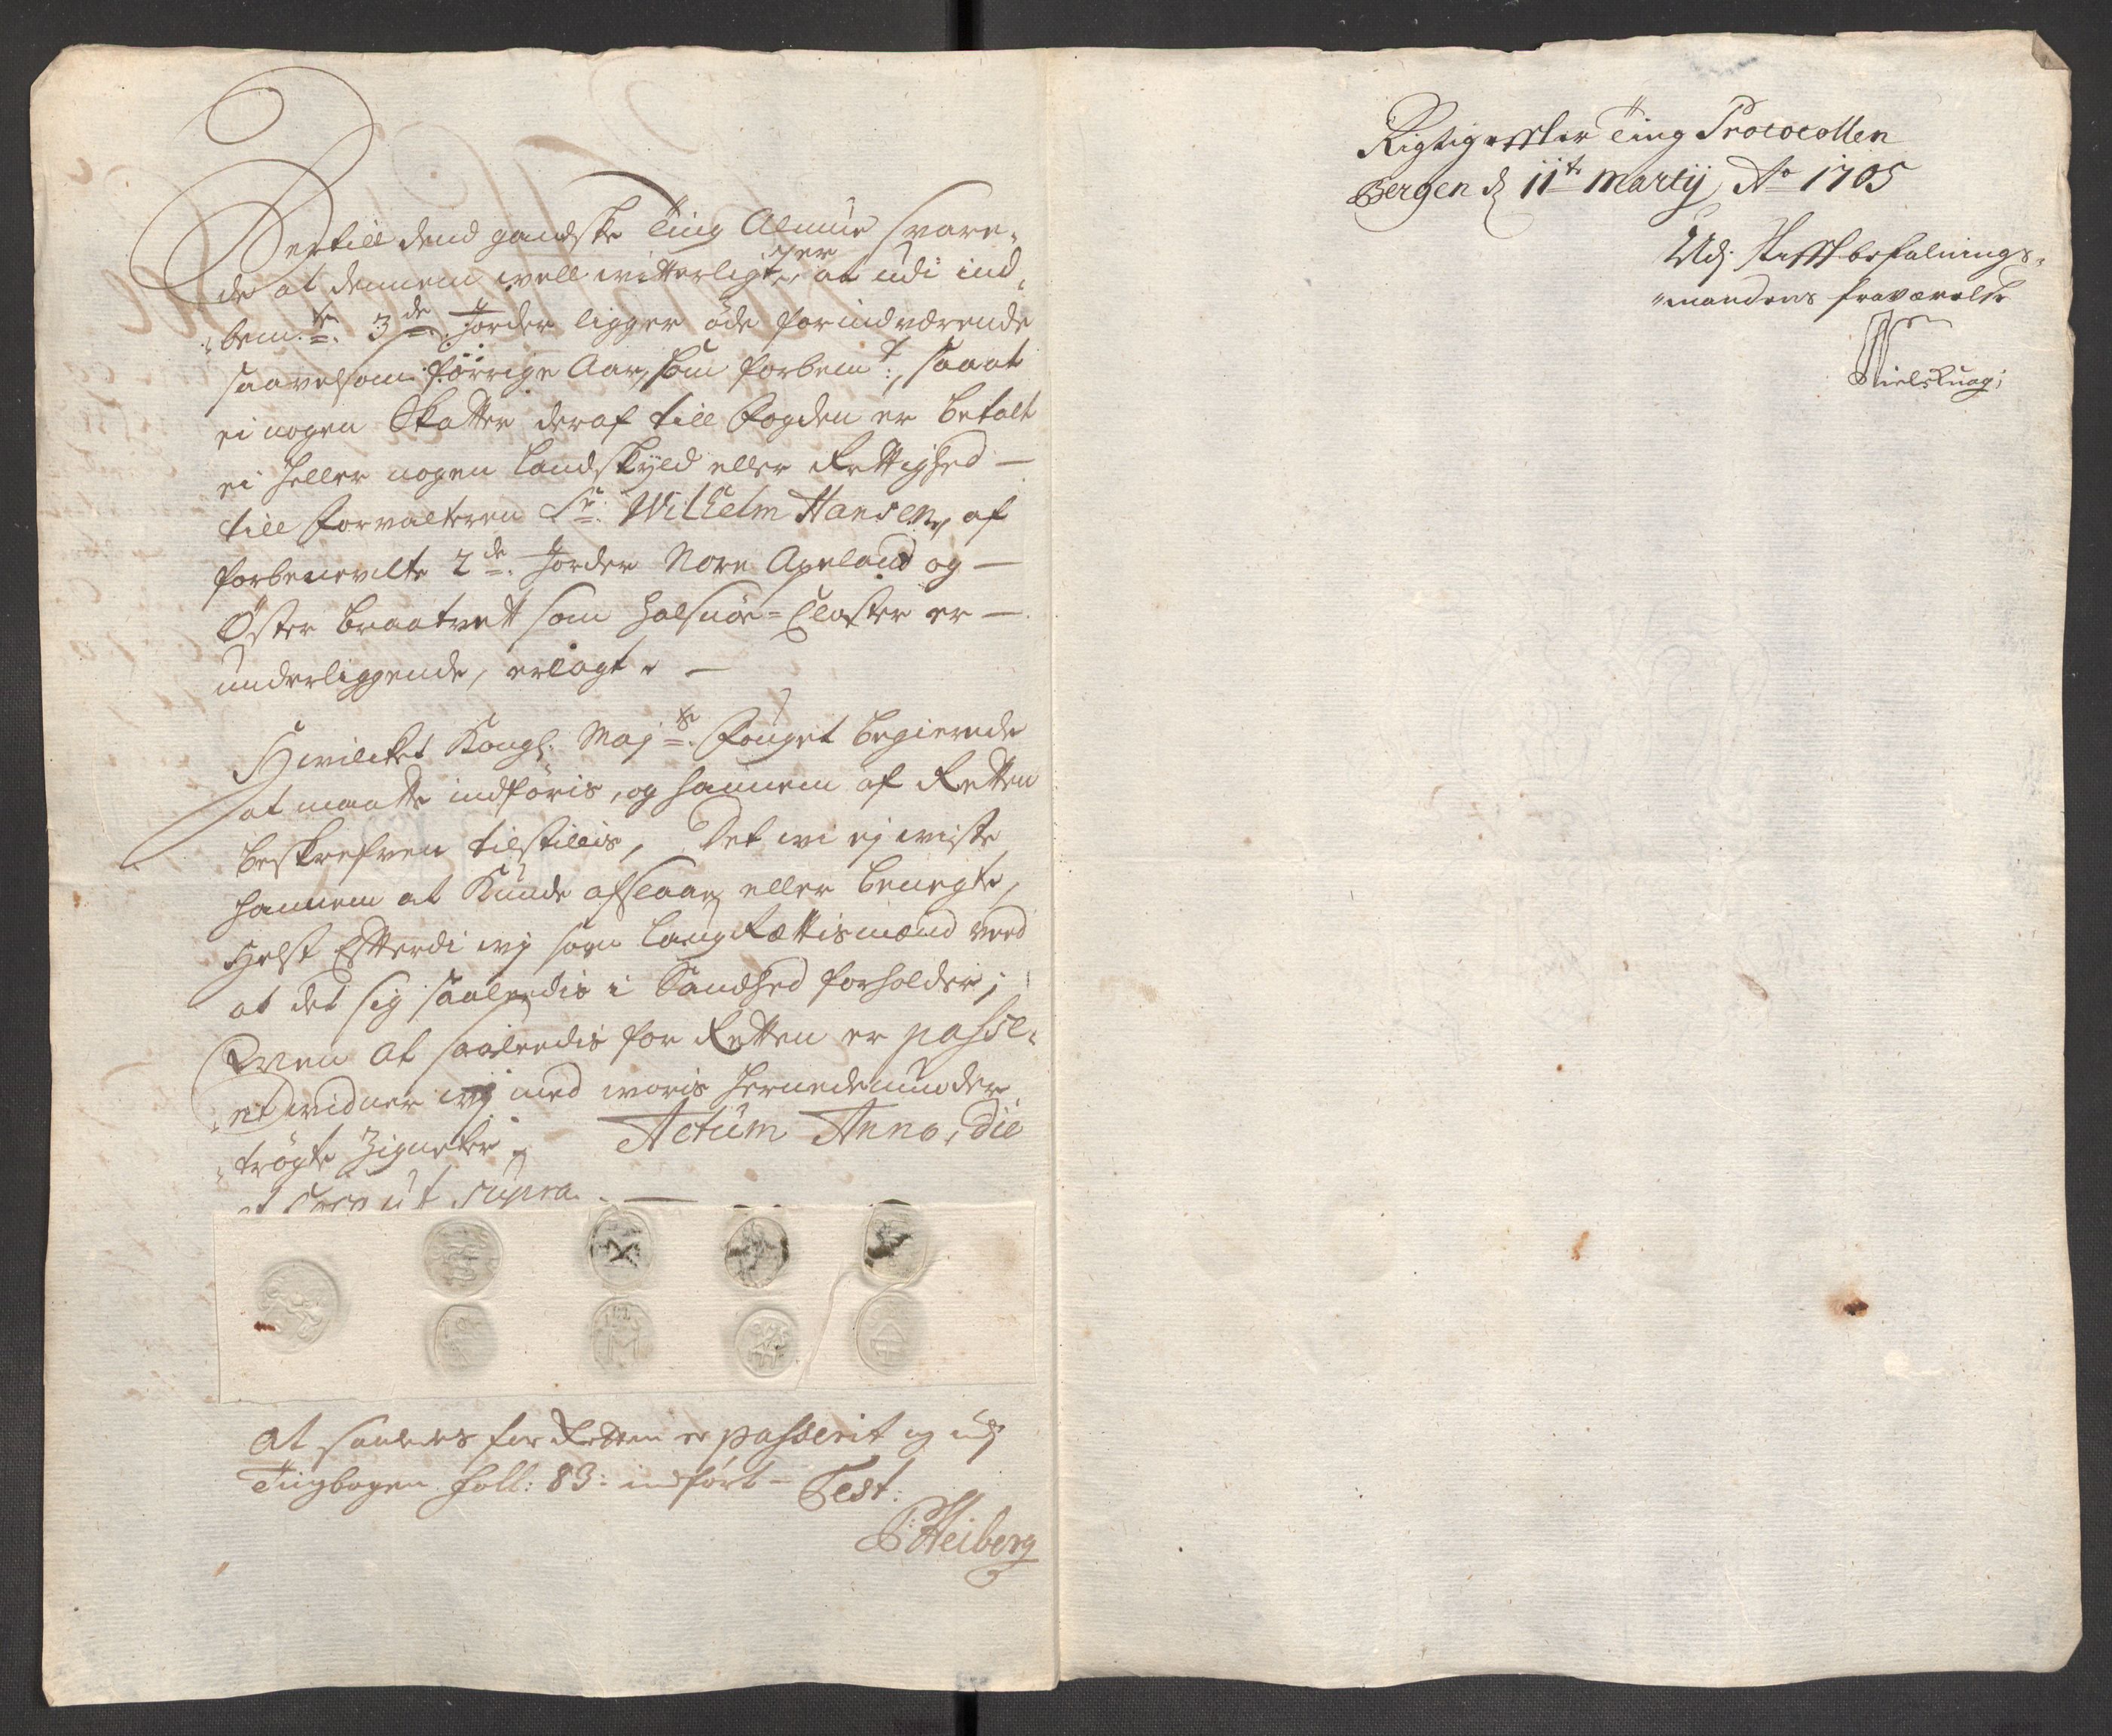 Dertill dend gandske Ting Almue svare-
de at dennem well witterligt er, at udi ind-
bem.te 3de Jorder ligger øde for indværende
saavelsom forrige Aar, som forbemt:, saa at
ei nogen Skatter deraf till Fogden er betalt
ei heller nogen Landskyld eller Rettighed -
till Forvalteren Sr. Wilhelm Hansen, af
forbenevnte 2de Jorder Nore Apeland og -
Øster Braatvett som Halsnøe-Closter er -
underliggende, erlagt. -
Hvilcket Kongl: Maj.ts Fouget begierede
at maatte indføris, og hannem af Retten
beskrefven tilstillis, Det vi ej viste
hannem at Kunde afslaae eller benegte,
Helst Efterdi wj som Laugrættismænd veed
at det sig saaledis i Sandhed forholder;
Men At saaledis for Retten er passe-
ret widner wj med woris hernedenunder
trøgte Zigneter, Actum Anno, die
et loco ut supra. -
At saaledes for Retten er passerit og udj
Tingbogen foll: 83: indført - Test:
P: Heiberg
Rigtig effter Ting Protocollen
Bergen d. 11te Martij Ao 1705
Udj Stifftbefalnings-
mandens fraværelse
Niels Knag;